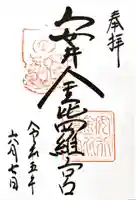 奉拝
安井金比羅宮
令和五年
六月七日